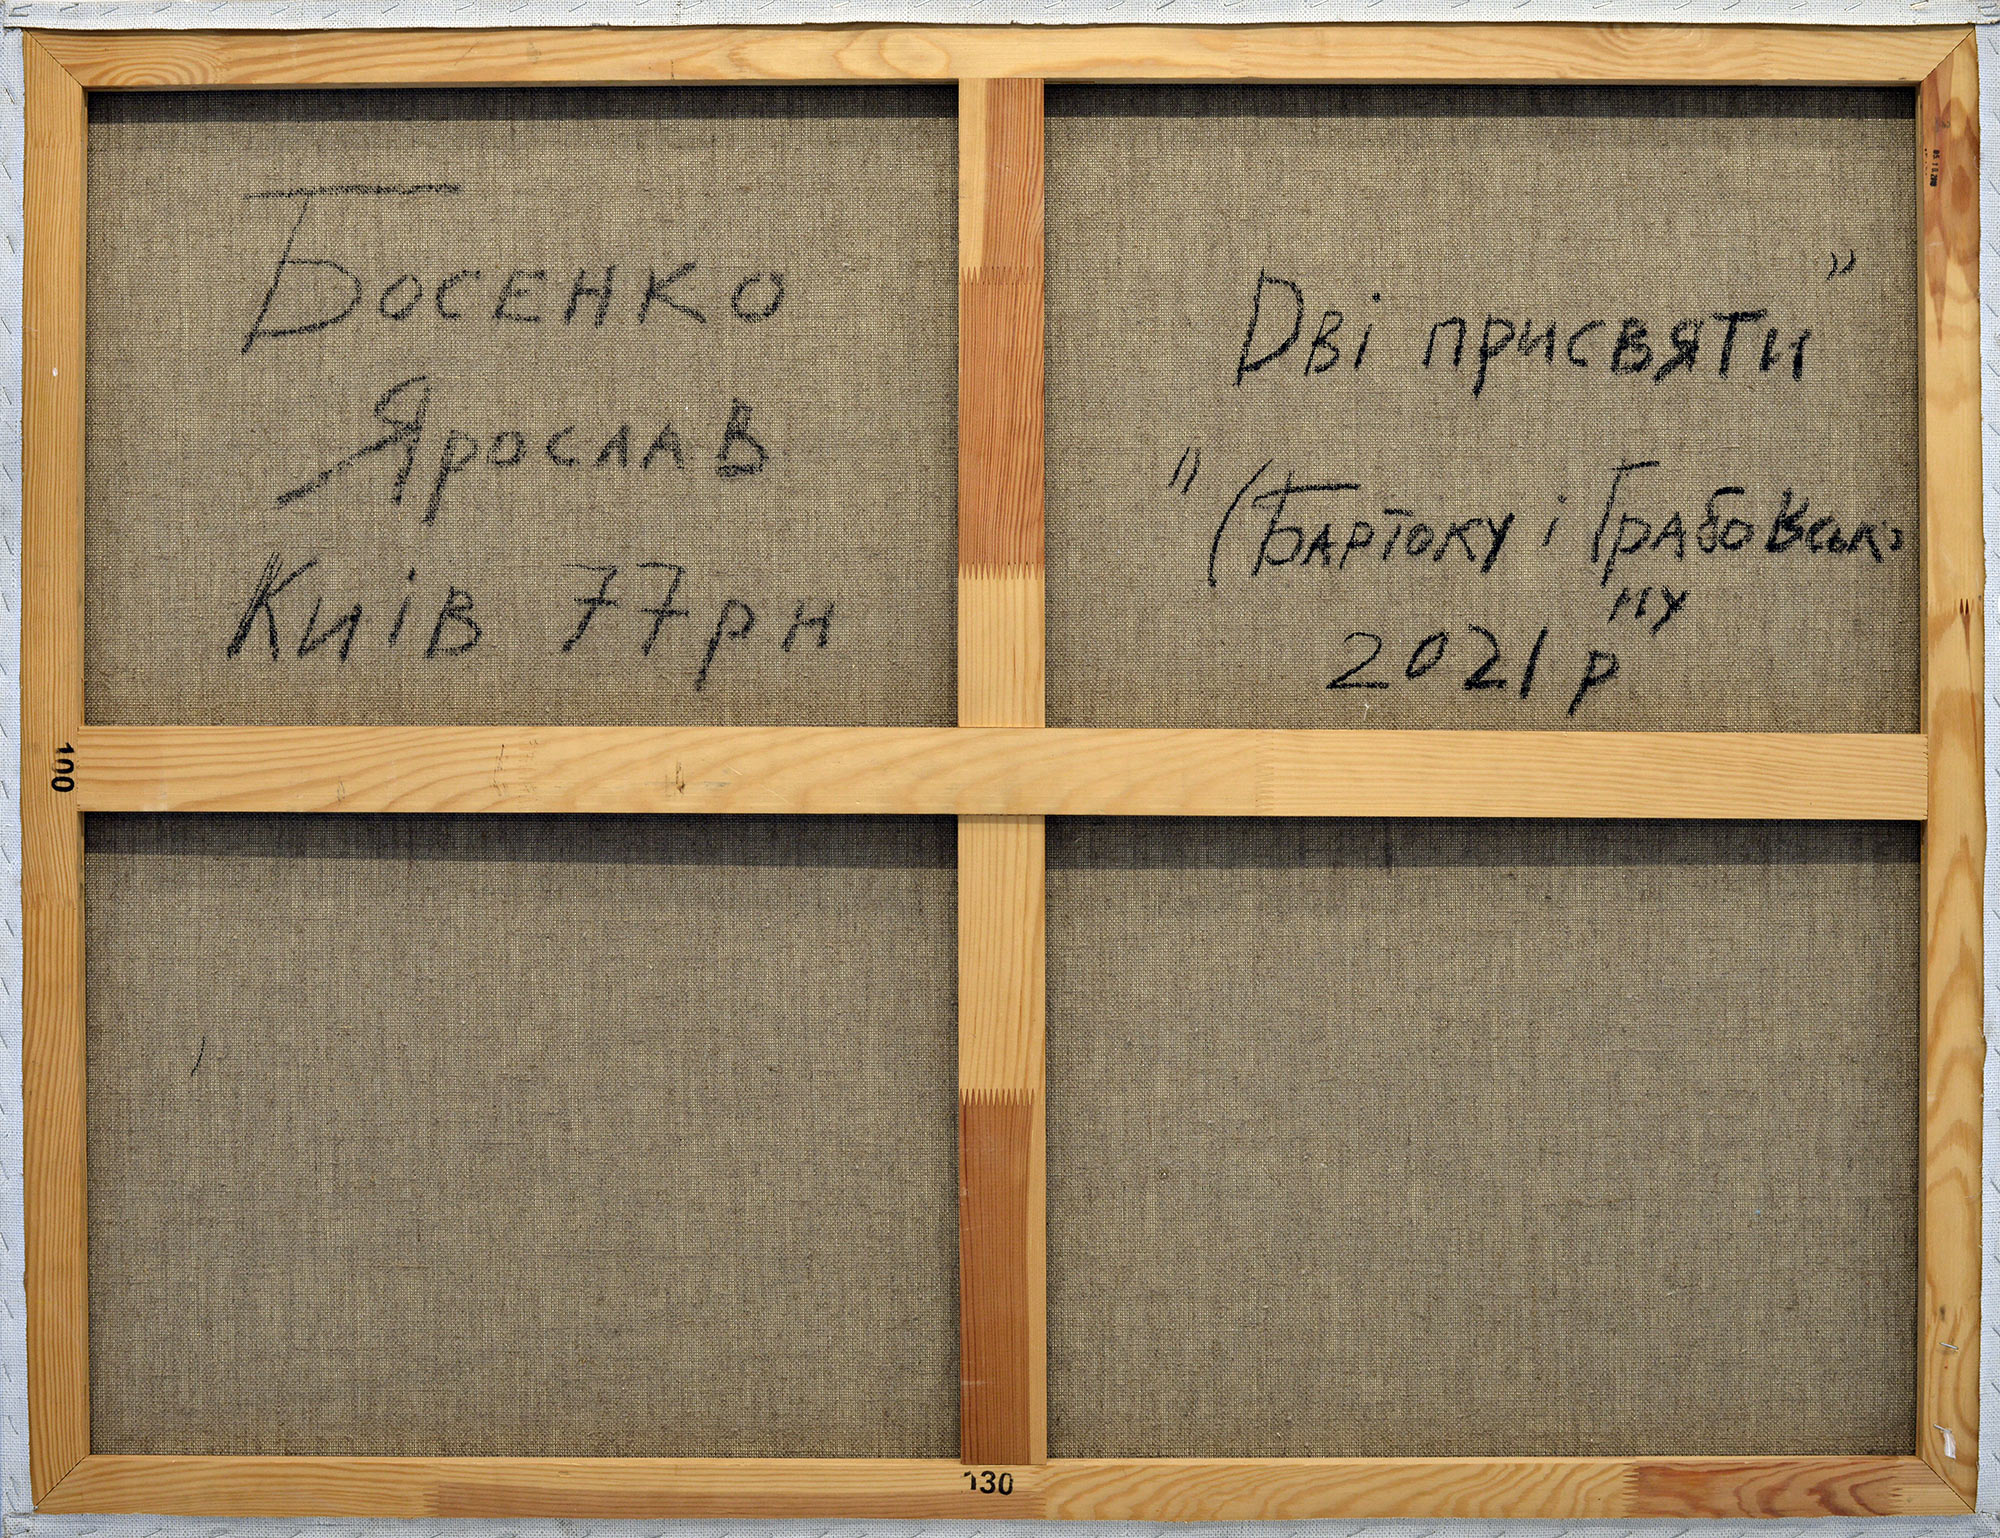 Босенко
Ярослав
Київ 77рн
Дві присвяти"
"(Бартоку і Грабовсько
му
2021р
100
130